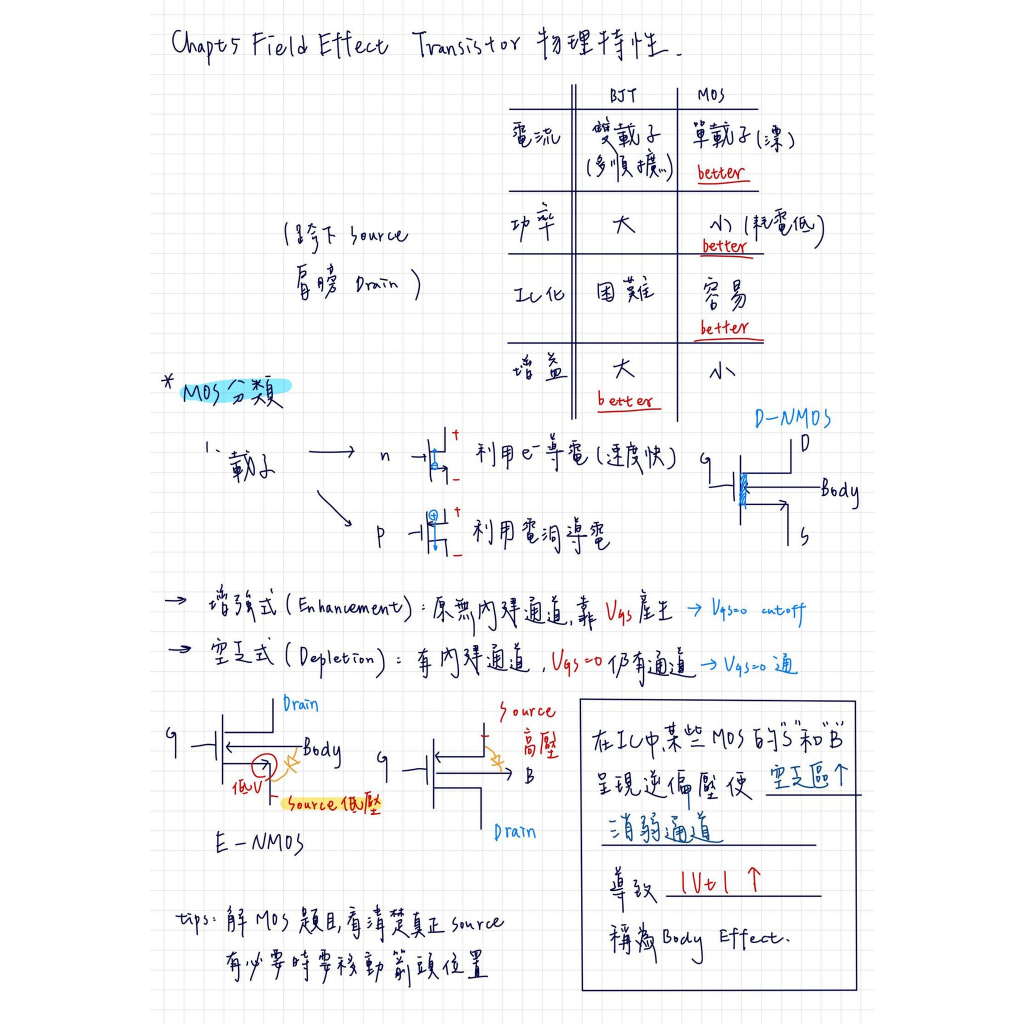 Chapt5 Field Effect Transistor 物理特性.
BJT MOS
電流 雙載子 單載子(漂)
(多順擴) better
功率 大 小(耗電低)
better
(胯下 source
肩膀 Drain)
IC化 困難 容易
better
增益 大 小
better
* MOS分類
D-NMOS
1. 載子 → n + - 利用e⁻導電(速度快)
G D Body S
p + - 利用電洞導電
→ 增強式(Enhancement): 原無內建通道, 靠 Vgs 產生 → Vgs=0 cutoff
→ 空乏式(Depletion): 有內建通道, Vgs=0 仍有通道 → Vgs=0 通
Drain
G Body
低V
Source低壓
E-NMOS
Source
高壓
G B
Drain
在IC中,某些MOS的"S"和"B"
呈現逆偏壓使 空乏區↑
消弱通道
導致 |Vt| ↑
稱為Body Effect.
tips: 解MOS題目,看清楚真正source
有必要時要移動箭頭位置